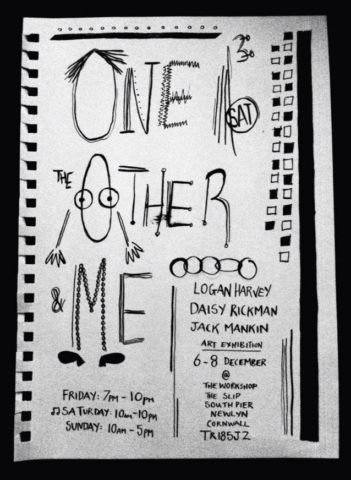 ONE
SAT
THE
OTHER
& ME
LOGAN HARVEY
DAISY RICKMAN
JACK MANKIN
ART EXHIBITION
6-8 DECEMBER
@
THE WORKSHOP
THE SLIP
SOUTH PIER
NEWLYN
CORNWALL
TR185JZ
FRIDAY: 7PM - 10PM
♫ SATURDAY: 10AM-10PM
SUNDAY: 10AM - 5PM